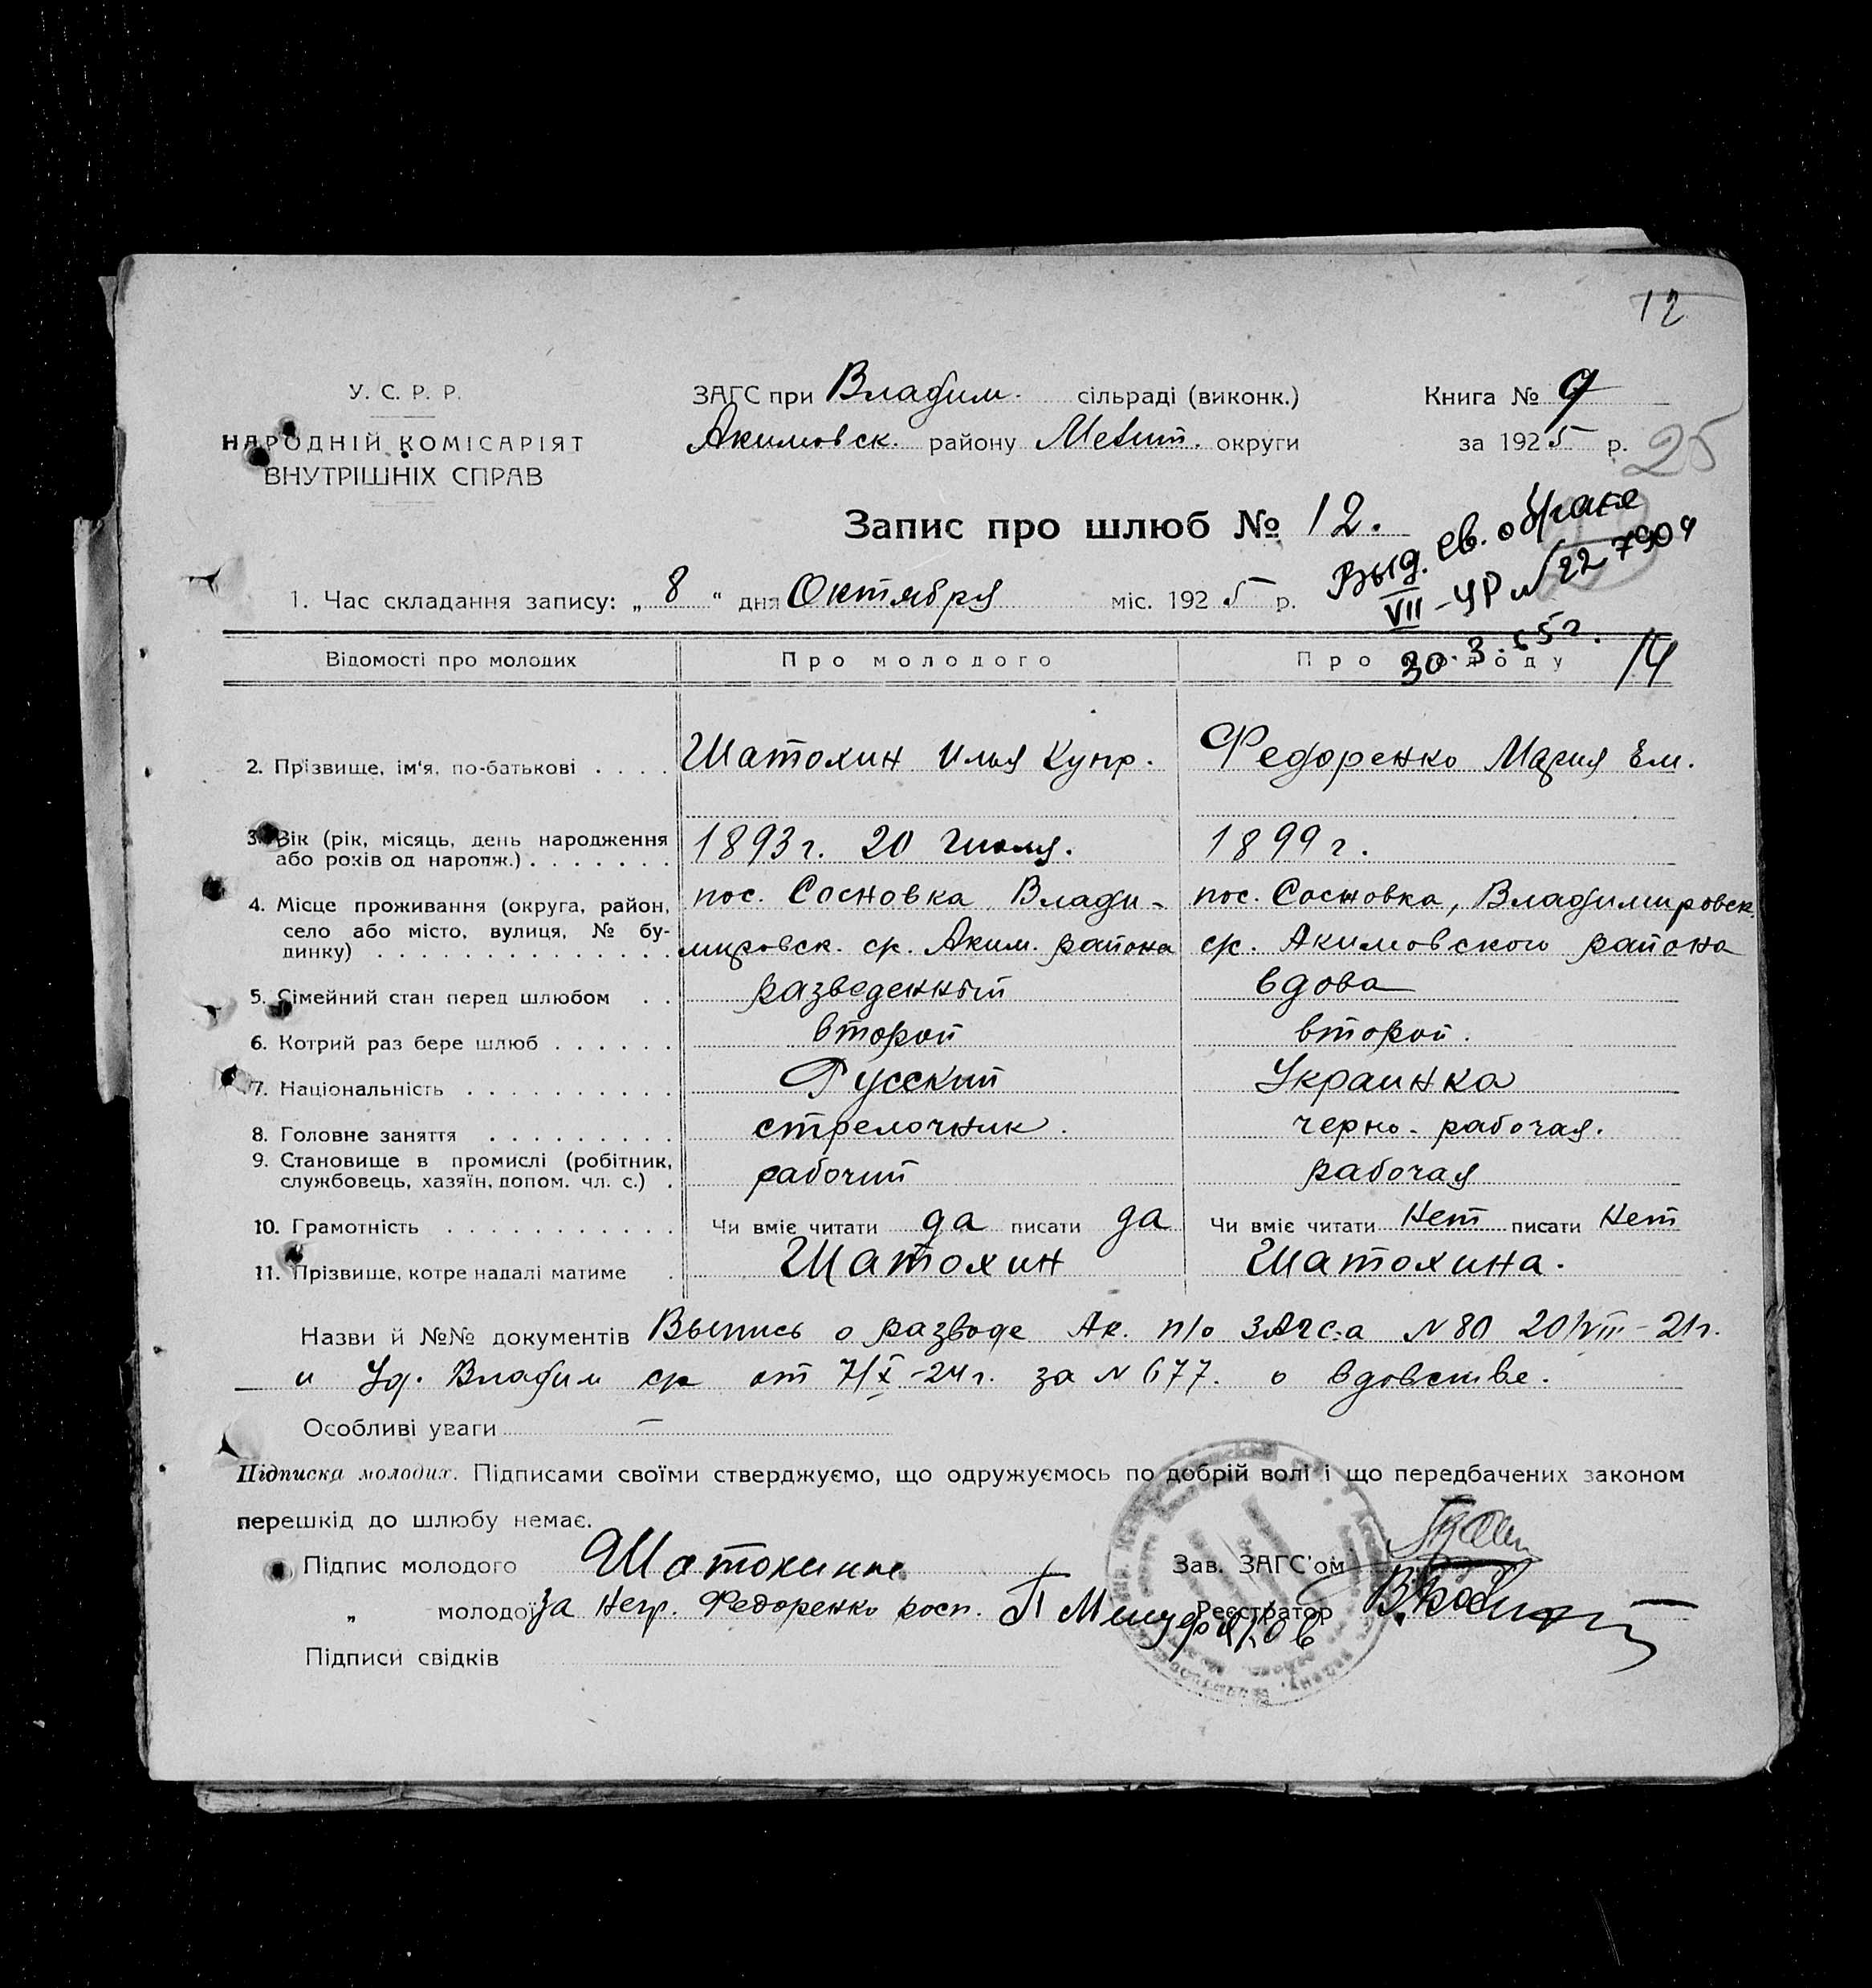 12
У. С. Р. Р.
НАРОДНІЙ КОМІСАРІЯТ
ВНУТРІШНІХ СПРАВ
ЗАГС при Владим. сільраді (виконк.)
Акимовск. району Мелит. округи
Книга № 9
за 1925 р.
25
Запис про шлюб № 12.
Выд. св. о браке
VII-УР № 227904
30.3.55г.
1. Час складання запису: „8“ дня Октября міс. 1925 р.
14
Відомості про молодих Про молодого Про молоду
2. Прізвище, ім'я, по-батькові . . . . Шатохин Илья Купр. Федоренко Мария Ем.
3. Вік (рік, місяць, день народження
або років од народж.) . . . . . . . 1893 г. 20 Июля. 1899 г.
4. Місце проживання (округа, район, пос. Сосновка Влади- пос. Сосновка, Владимировск.
село або місто, вулиця, № бу-
динку) . . . . . . . . . . . . . . мировск. ср. Аким. района ср. Акимовского района
5. Сімейний стан перед шлюбом . . разведенный вдова
6. Котрий раз бере шлюб . . . . . . второй второй.
7. Національність . . . . . . . . . . Русский Украинка
8. Головне заняття . . . . . . . . . стрелочник. черно-рабочая.
9. Становище в промислі (робітник,
службовець, хазяїн, допом. чл. с.) . рабочий рабочая
10. Грамотність . . . . . . . . . . . Чи вміє читати да писати да Чи вміє читати нет писати нет
11. Прізвище, котре надалі матиме . Шатохин Шатохина.
Назви й №№ документів Выпись о разводе Ак. п/о ЗАГС-а N 80 20/VIII-21г.
и Уд. Владим ср от 7/X-24 г. за N 677. о вдовстве.
Особливі уваги —
Підписка молодих. Підписами своїми стверджуємо, що одружуємось по добрій волі і що передбачених законом
перешкід до шлюбу немає.
Підпис молодого Шатохин Зав. ЗАГС'ом
„ молодої за негр. Федоренко росп. Реєстратор
Підписи свідків